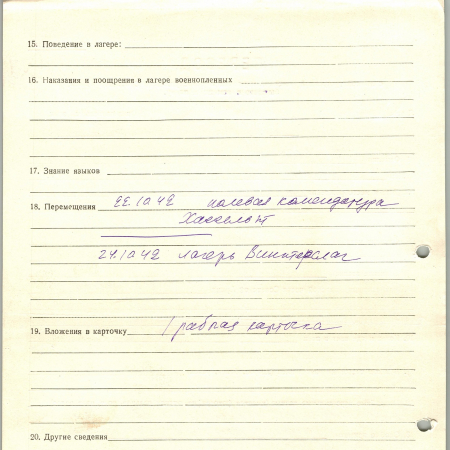 15. Поведение в лагере:
16. Наказания и поощрения в лагере военнопленных
17. Знание языков
18. Перемещения 22.10 42 полевая комендатура
Хассельт
24.10 42 лагерь Винтерслаг
19. Вложения в карточку 1 рабочая карточка
20. Другие сведения